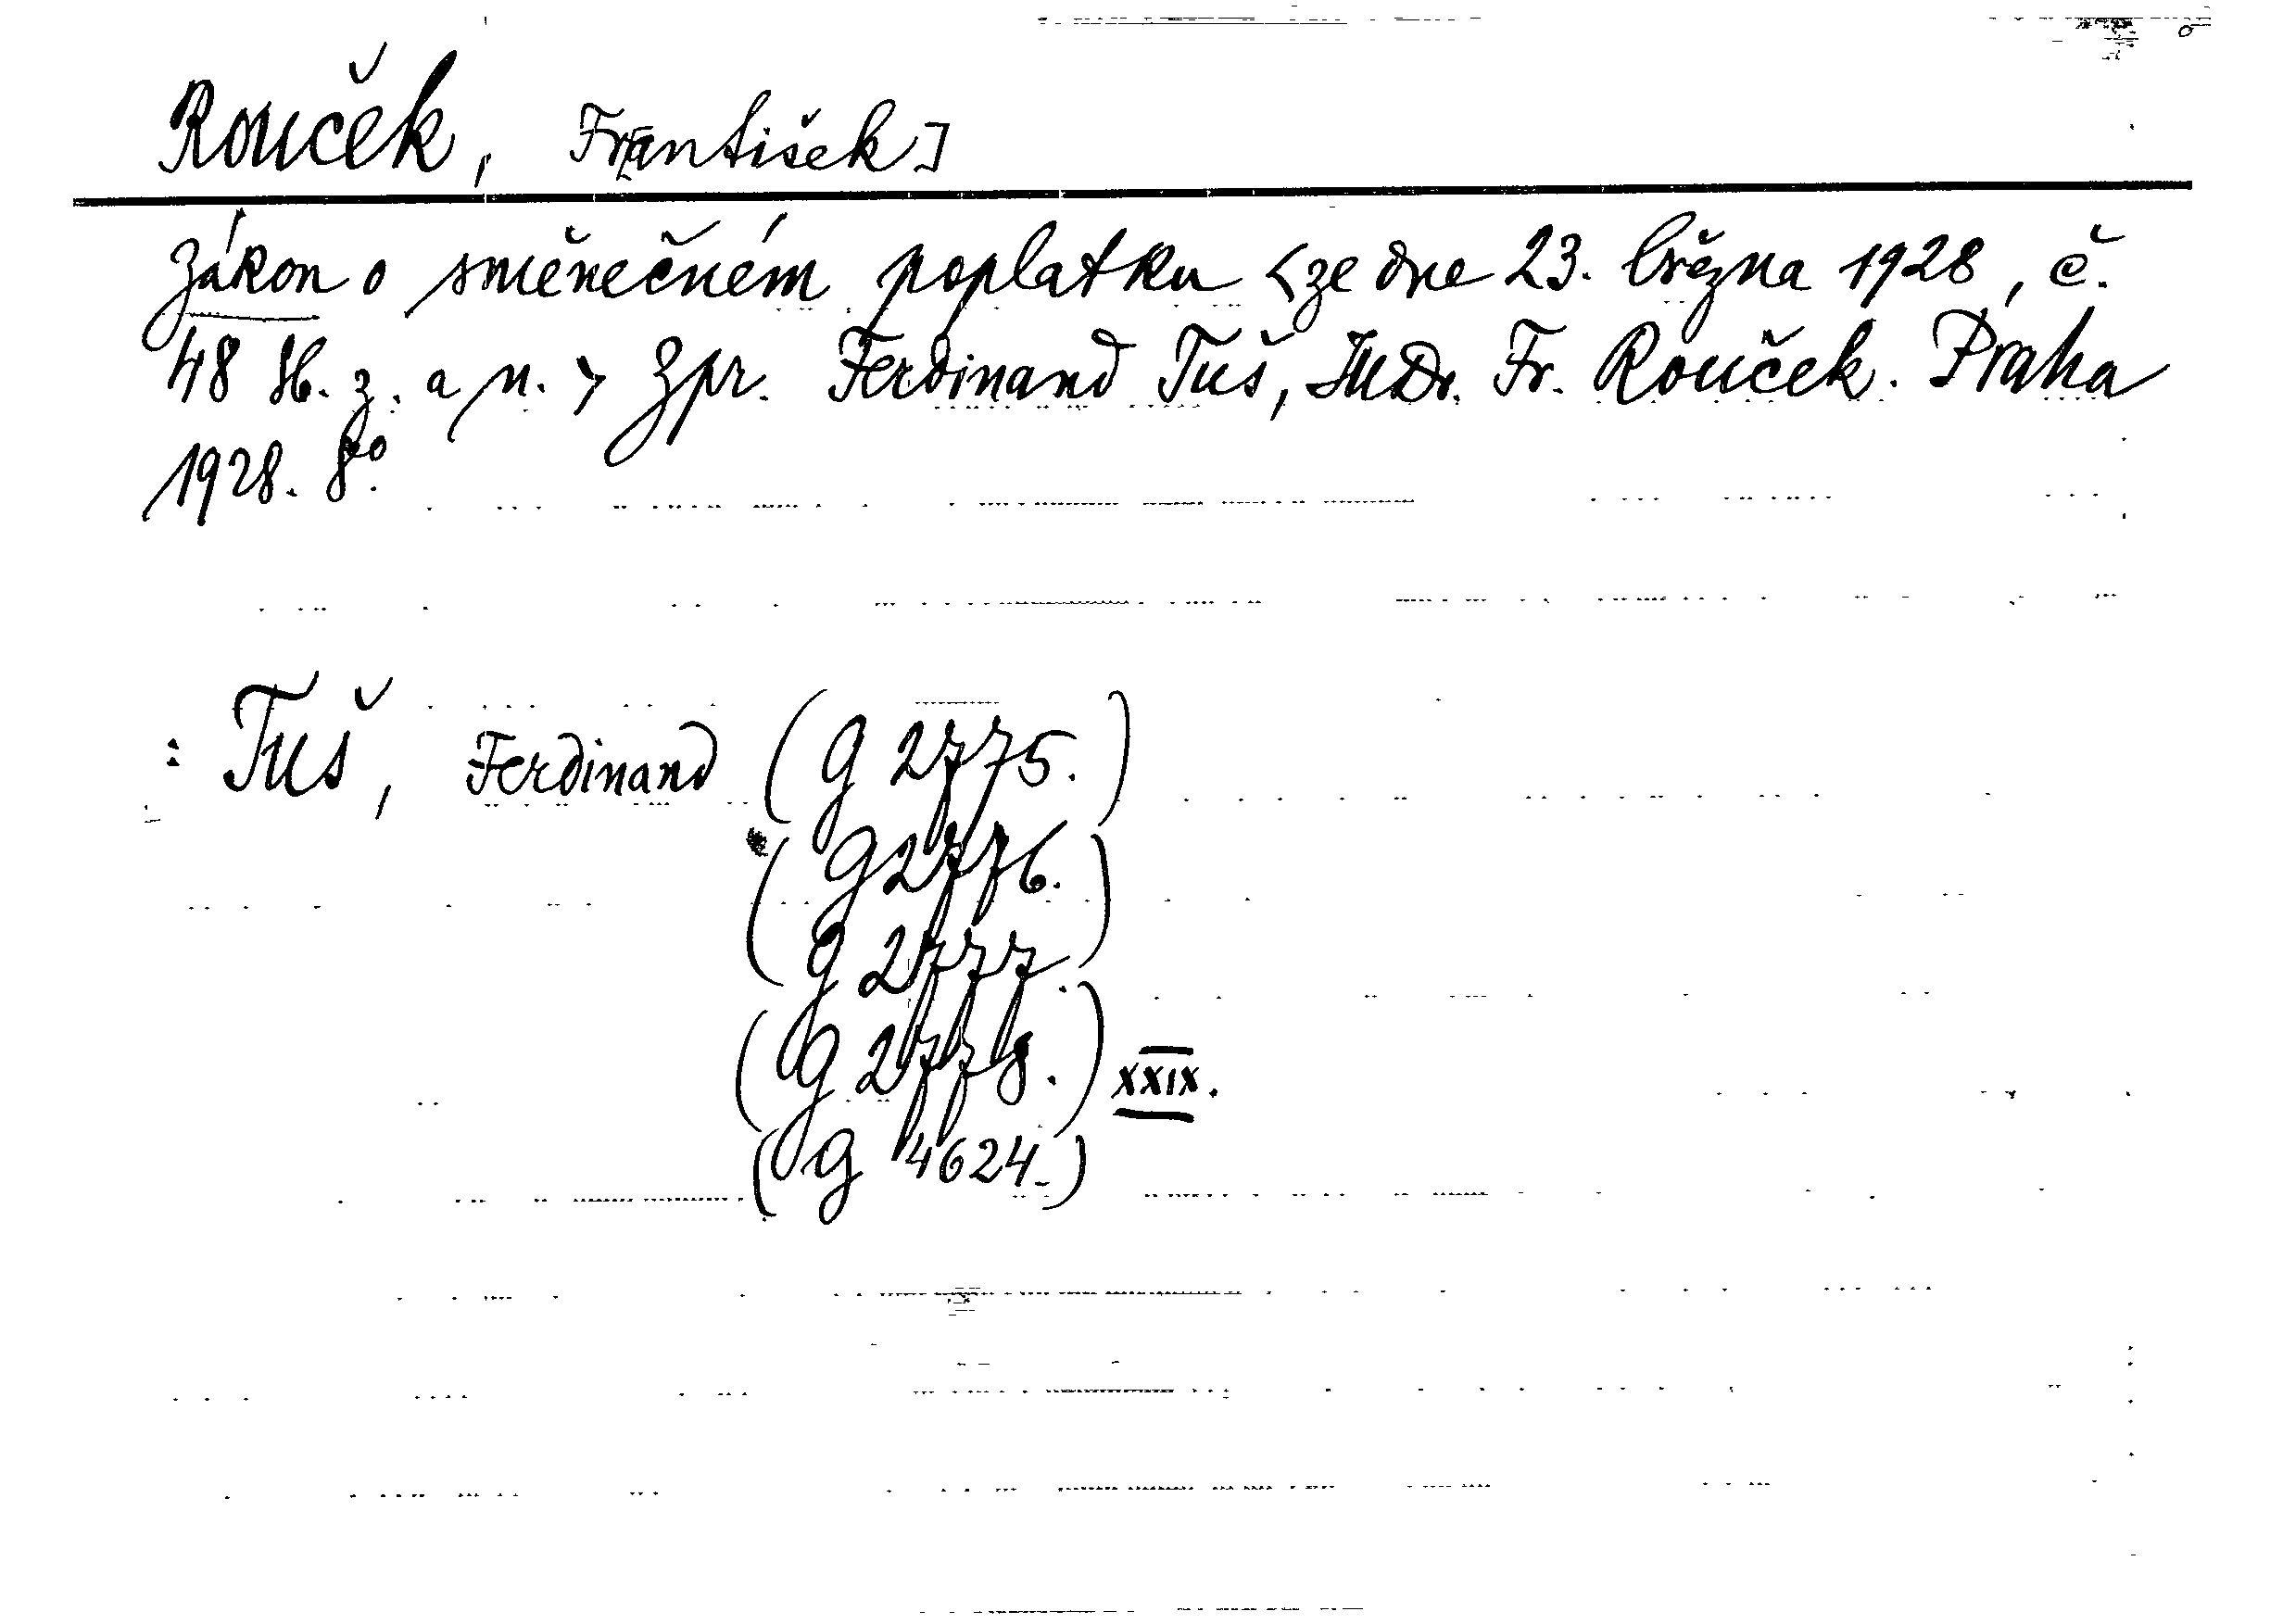 Rouček, Fr[antišek]
Zákon o směnečném poplatku <ze dne 23. března 1928, č.
48 Sb. z. a n.> Zpr. Ferdinand Tuš, JUDr. Fr. Rouček. Praha
1928. 8o.
: Tuš, Ferdinand (G 2775.)
(G 2776.)
G 2777.
(G 2778.) XXIX.
(G 4624.)